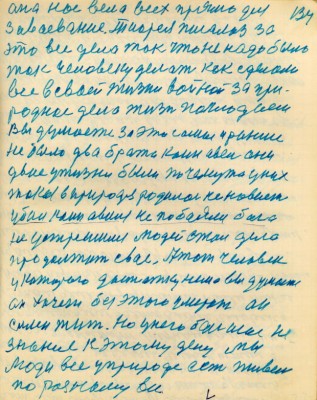 она нас вела всех прямо до
134
забавание. Паршек писал за
это все дела так что не надо было
так человеку делать как сделали
все в своей жизни войной за при-
родное дело жизн
Вы думаете за это самое раньше
не было два брата каин авен они
двое у жизни были почему то у них
такое в природе родилося не новость
убил каин авиля не побоялся бога
не устрашился людей стал дело
продолжит свое. А тот человек
у которого достатку нема вы думаете
он хочет без этого умереть он
силен жит. Но у него большое не
знание к этому делу мы
люди все у природе ест живем
по разному вы